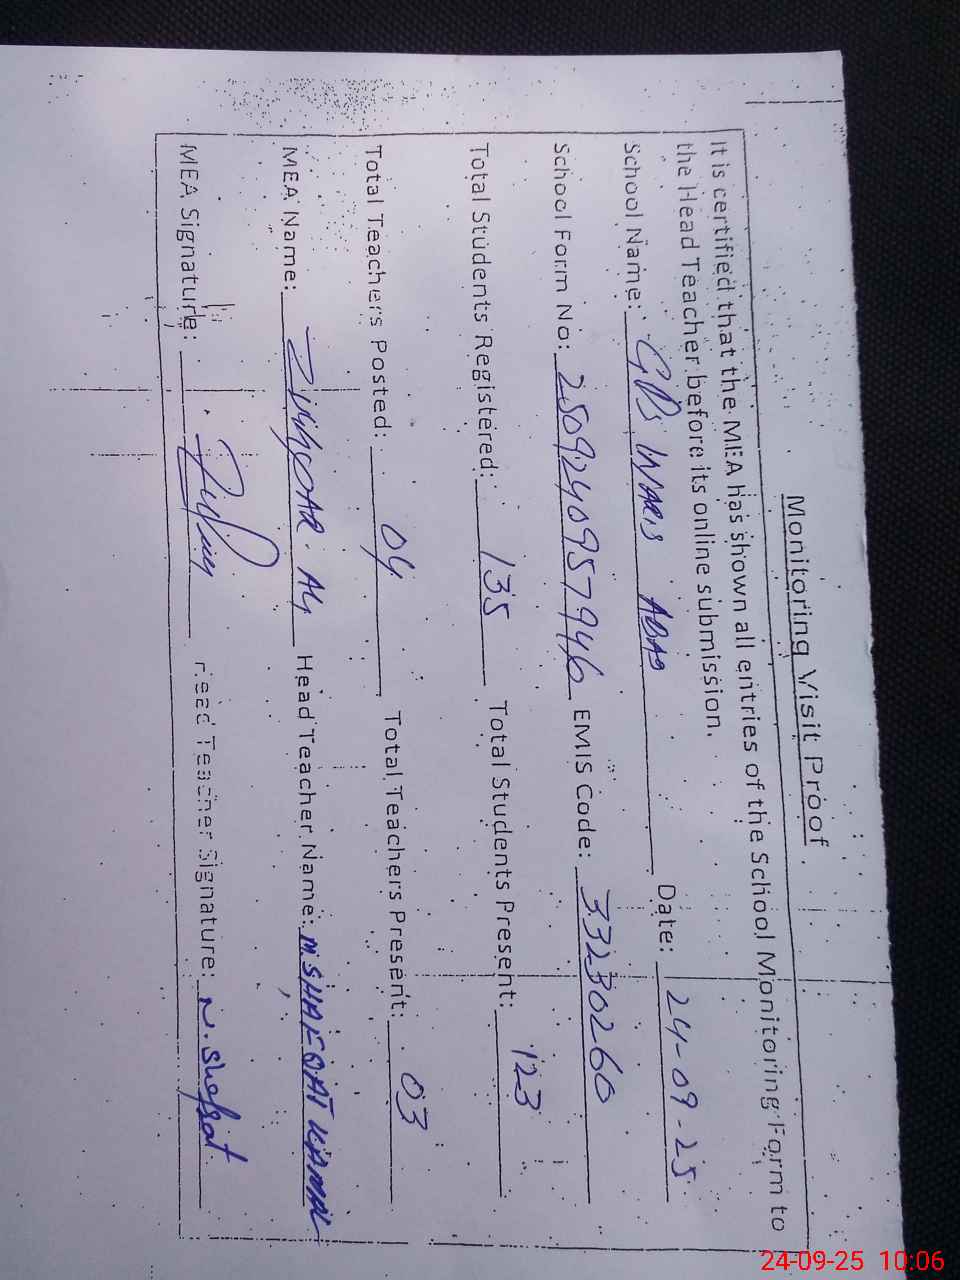 Monitoring Visit Proof
It is certified that the MEA has shown all entries of the School Monitoring Form to
the Head Teacher before its online submission.
School Name: GPS WARIS ABAD Date: 24-09-25
School Form No: 2509240957946 EMIS Code: 33230260
Total Students Registered: 135 Total Students Present: 123
Total Teachers Posted: 04 Total Teachers Present: 03
MEA Name: ZULFIQAR Ali Head Teacher Name: M SHAFQAT KAMAL
MEA Signature: Head Teacher Signature: N. Shafqat
24-09-25 10:06